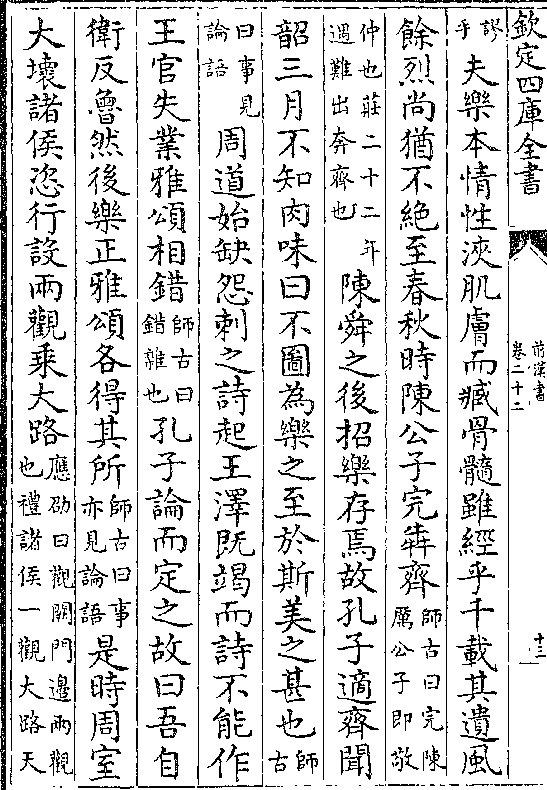 欽定四庫全書
前漢書
卷二十二
十三
謬
乎
夫樂本情性浹肌膚而臧骨髓雖經乎千載其遺風
餘烈尚猶不絕至春秋時陳公子完犇齊
師古曰完陳
厲公子即敬
仲也莊二十二年
遇難出奔齊也
陳舜之後招樂存焉故孔子適齊聞
韶三月不知肉味曰不圖為樂之至於斯美之甚也
師
古
曰事見
論語
周道始缺怨刺之詩起王澤既竭而詩不能作
王官失業雅頌相錯
師古曰
錯雜也
孔子論而定之故曰吾自
衛反魯然後樂正雅頌各得其所
師古曰事
亦見論語
是時周室
大壞諸侯恣行設兩觀乘大路
應劭曰觀闕門邊兩觀
也禮諸侯一觀大路天